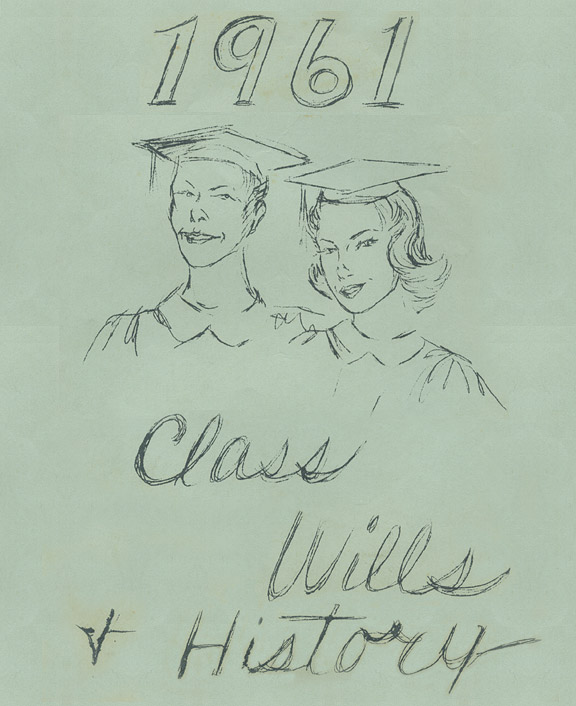 1961
Class
Wills
& History